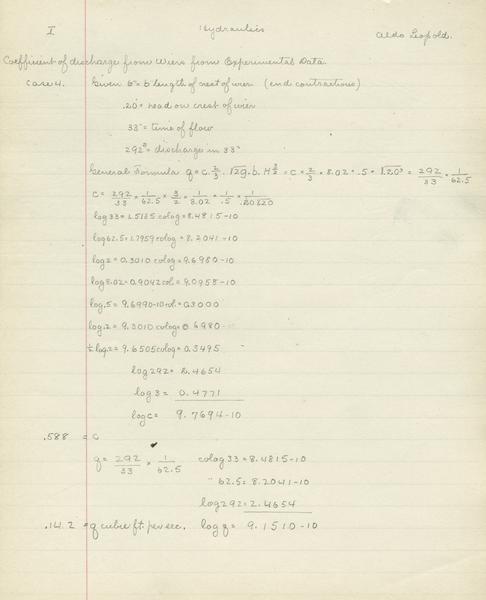 I Hydraulics Aldo Leopold.
Coefficient of discharge from wiers from Experimental Data.
Case 4. Given 6" = b length of crest of wier (end contractions)
.20' = head on crest of wier
33" = time of flow
292# = discharge in 33"
General Formula q = c. 2/3 . √2g . b. H 3/2 = c × 2/3 × 8.02 × .5 × √.20³ = 292/33 × 1/62.5
c = 292/33 × 1/62.5 × 3/2 × 1/8.02 × 1/.5 × 1/.20√.20
log 33 = 1.5185 colog = 8.4815-10
log 62.5 = 1.7959 colog = 8.2041-10
log 2 = 0.3010 colog = 9.6980-10
log 8.02 = 0.9042 col. = 9.0958-10
log .5 = 9.6990-10 col. = 0.3000
log .2 = 9.3010 colog = 0.6980-
½ log .2 = 9.6505 colog = 0.3495
log 292 = 2.4654
log 3 = 0.4771
log c = 9.7694-10
.588 = c
q = 292/33 × 1/62.5 colog 33 = 8.4815-10
" 62.5 = 8.2041-10
log 292 = 2.4654
.14.2 = q cubic ft. per sec. log q = 9.1510-10